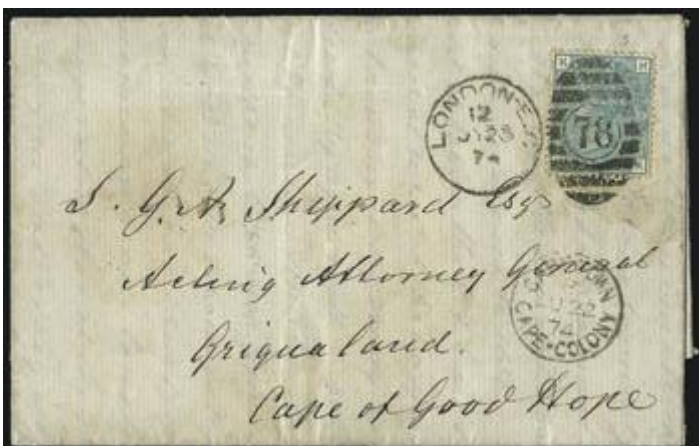 H H
LONDON-E.C
12
JY 28
74
78
S. G. A. Sheppard Esq
Acting Attorney General
Griqualand.
Cape of Good Hope
22
74
CAPE·COLONY